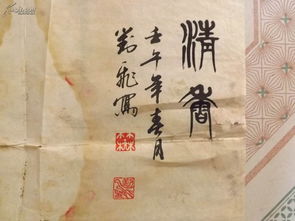 清香
壬午年春月
刘飛寫